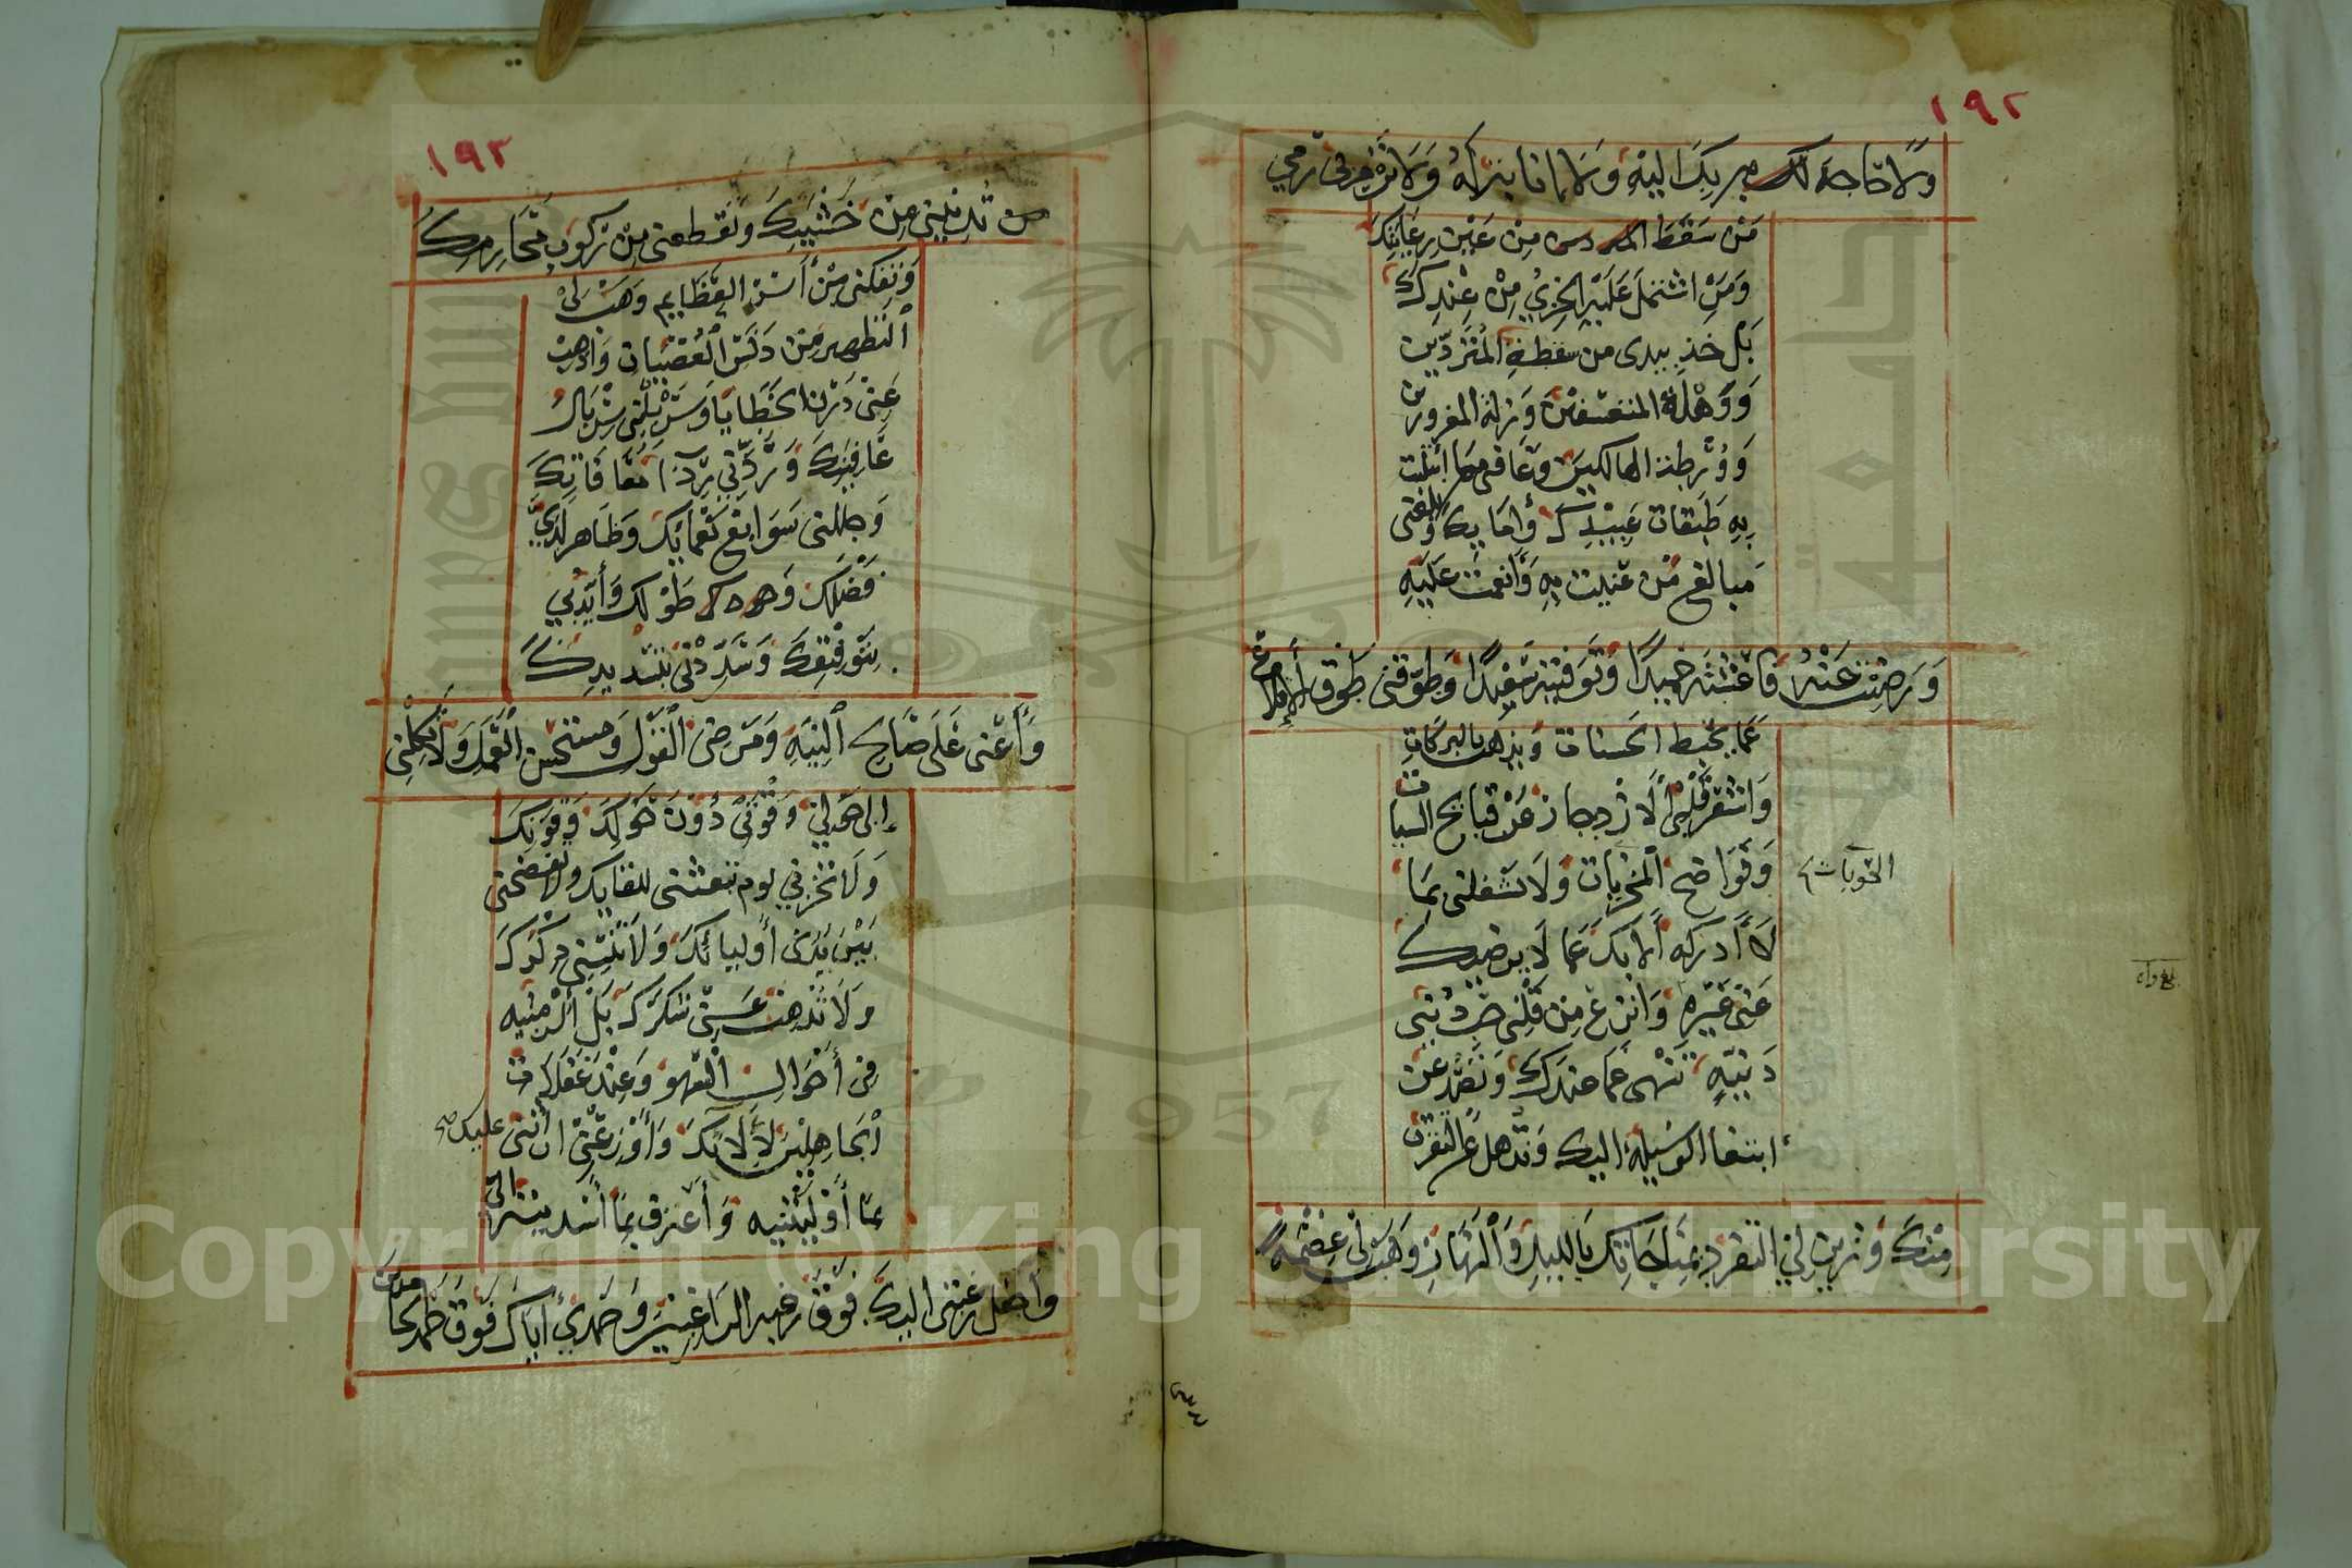 ١٩٢
ولا حاجة لك إليه ولا إنابة له ولا ترم بي رمي
من سقط من عين رعايتك
ومن اشتمل عليه الخزي من عندك
بل خذ بيدي من سقطة المتردين
ووهلة المتعسفين وزلة المغرورين
وورطة الهالكين وعافني مما ابتليت
به طبقات عبيدك وإمائك وبلغني
مبالغ من عنيت به وأنعمت عليه
ورضيت عنه فأعشته حميدا وتوفيته سعيدا وطوقني طوق الإقلاع
عما يحبط الحسنات ويذهب بالبركات
وأشعر قلبي الازدجار عن قبائح السيئات
وفواضح المخزيات ولا تشغلني بما
الحوبات
لا أدركه إلا بك عما لا يرضيك
عني غيره وانزع من قلبي حب دنيا
دنية تنهى عما عندك وتصد عن
ابتغاء الوسيلة إليك وتذهل عن التقرب
منك وزين لي التفرد بمناجاتك بالليل والنهار وهب لي عصمة
١٩٢
تدنيني من خشيتك وتقطعني من ركوب محارمك
وتفكني من أسر العظايم وهب لي
التطهير من دنس العصيان وأذهب
عني درن الخطايا وسربلني بسربال
عافيتك وردني رداء معافاتك
وجللني سوابغ نعمائك وظاهر لدي
فضلك وطولك وأيدني
بتوفيقك وسددني بتسديدك
وأعني على صالح النية ومرضي القول ومستحسن العمل ولا تكلني
إلى حولي وقوتي دون حولك وقوتك
ولا تخزني يوم تبعثني للقايك ولا تفضحني
بين يدي أوليائك ولا تنسني ذكرك
ولا تذهب عني شكرك بل ألزمنيه
في أحوال السهو عند غفلات
الجاهلين لآلائك وأوزعني أن أثني عليك صح
بما أوليتنيه وأعترف بما أسديته إلي
واجعل رغبتي إليك فوق رغبة الراغبين وحمدي إياك فوق حمد الحامدين
Copyright © King Saud University
1957